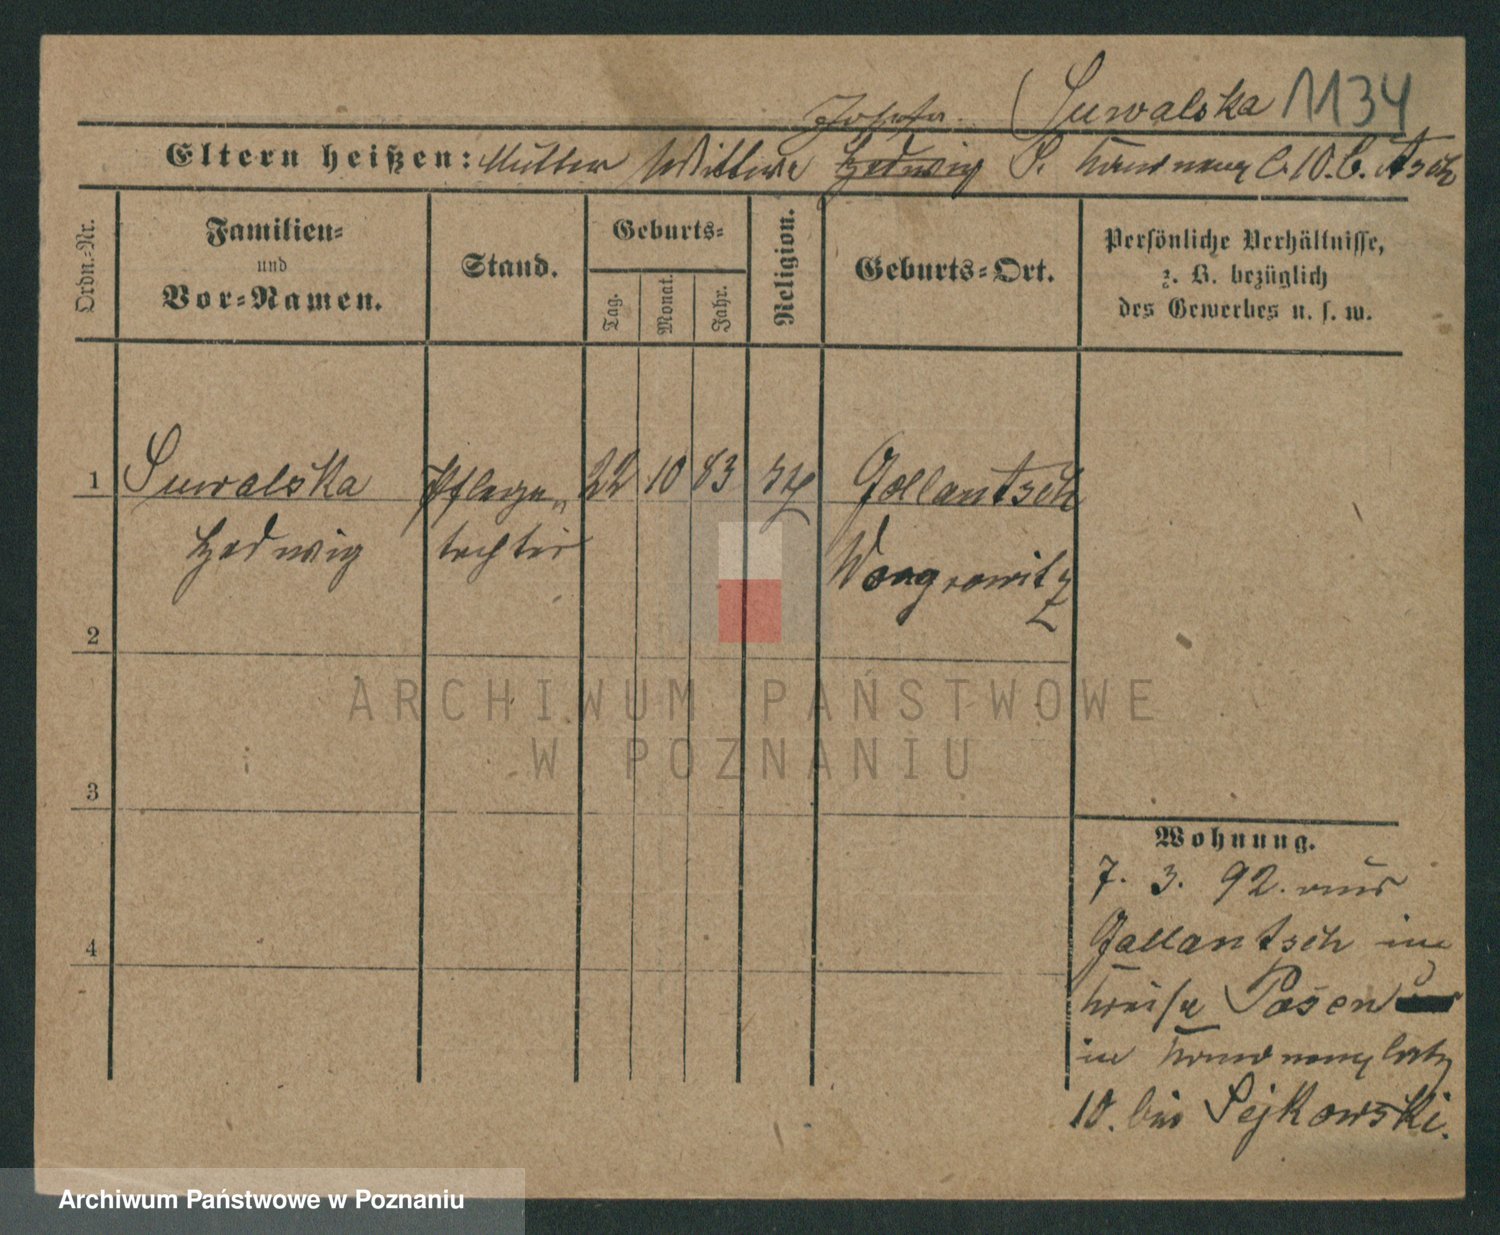 Josefa Suwalska 1134
Eltern heißen: Mutter Wittwe Hedwig S.
Ordn.-Nr.
Familien-
und
Vor-Namen.
Stand.
Geburts-
Tag.
Monat.
Jahr.
Religion.
Geburts-Ort.
Persönliche Verhältnisse,
z. B. bezüglich
des Gewerbes u. s. w.
1 Suwalska Pflege- 22 10 83 Gollantsch
Hedwig tochter Wongrowitz
2
3
4
Wohnung.
7. 3. 92. aus
Gollantsch im
Kreise Posen
in
10. bei Sejkowski.
ARCHIWUM PAŃSTWOWE
W POZNANIU
Archiwum Państwowe w Poznaniu